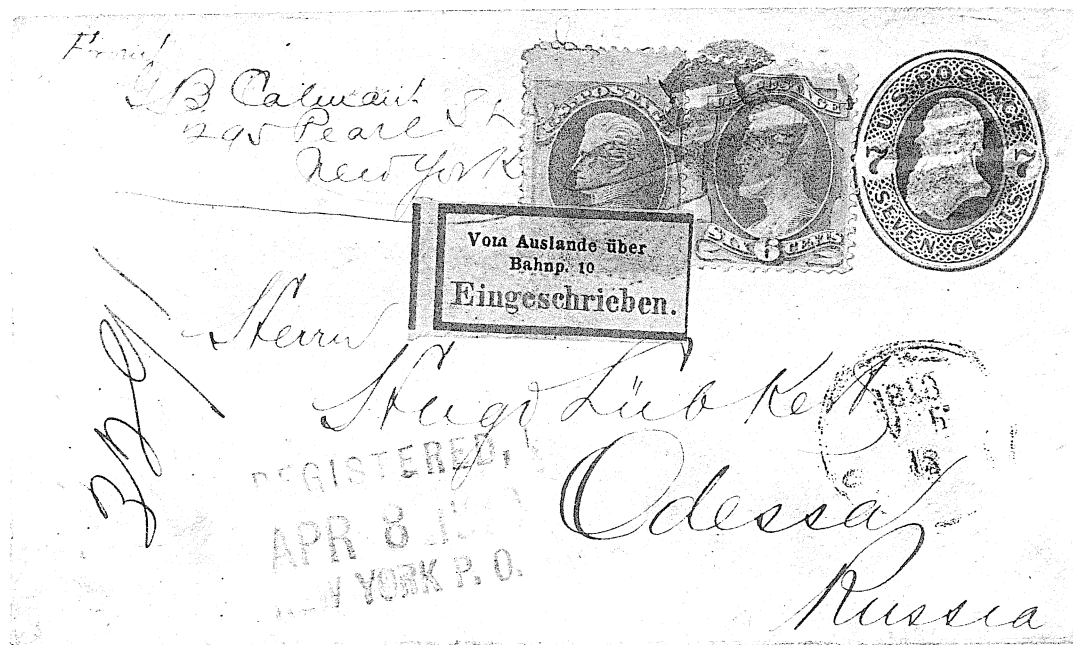 From
G B Calman
295 Pearl St
New York
U.S. POSTAGE
U.S. POSTAGE
SIX 6 CENTS
U.S. POSTAGE
7 7
SEVEN CENTS
Vom Auslande über
Bahnp. 10
Eingeschrieben.
329
Herrn
Hugo Lübkert
Odessa
Russia
REGISTERED,
APR 8
NEW YORK P. O.